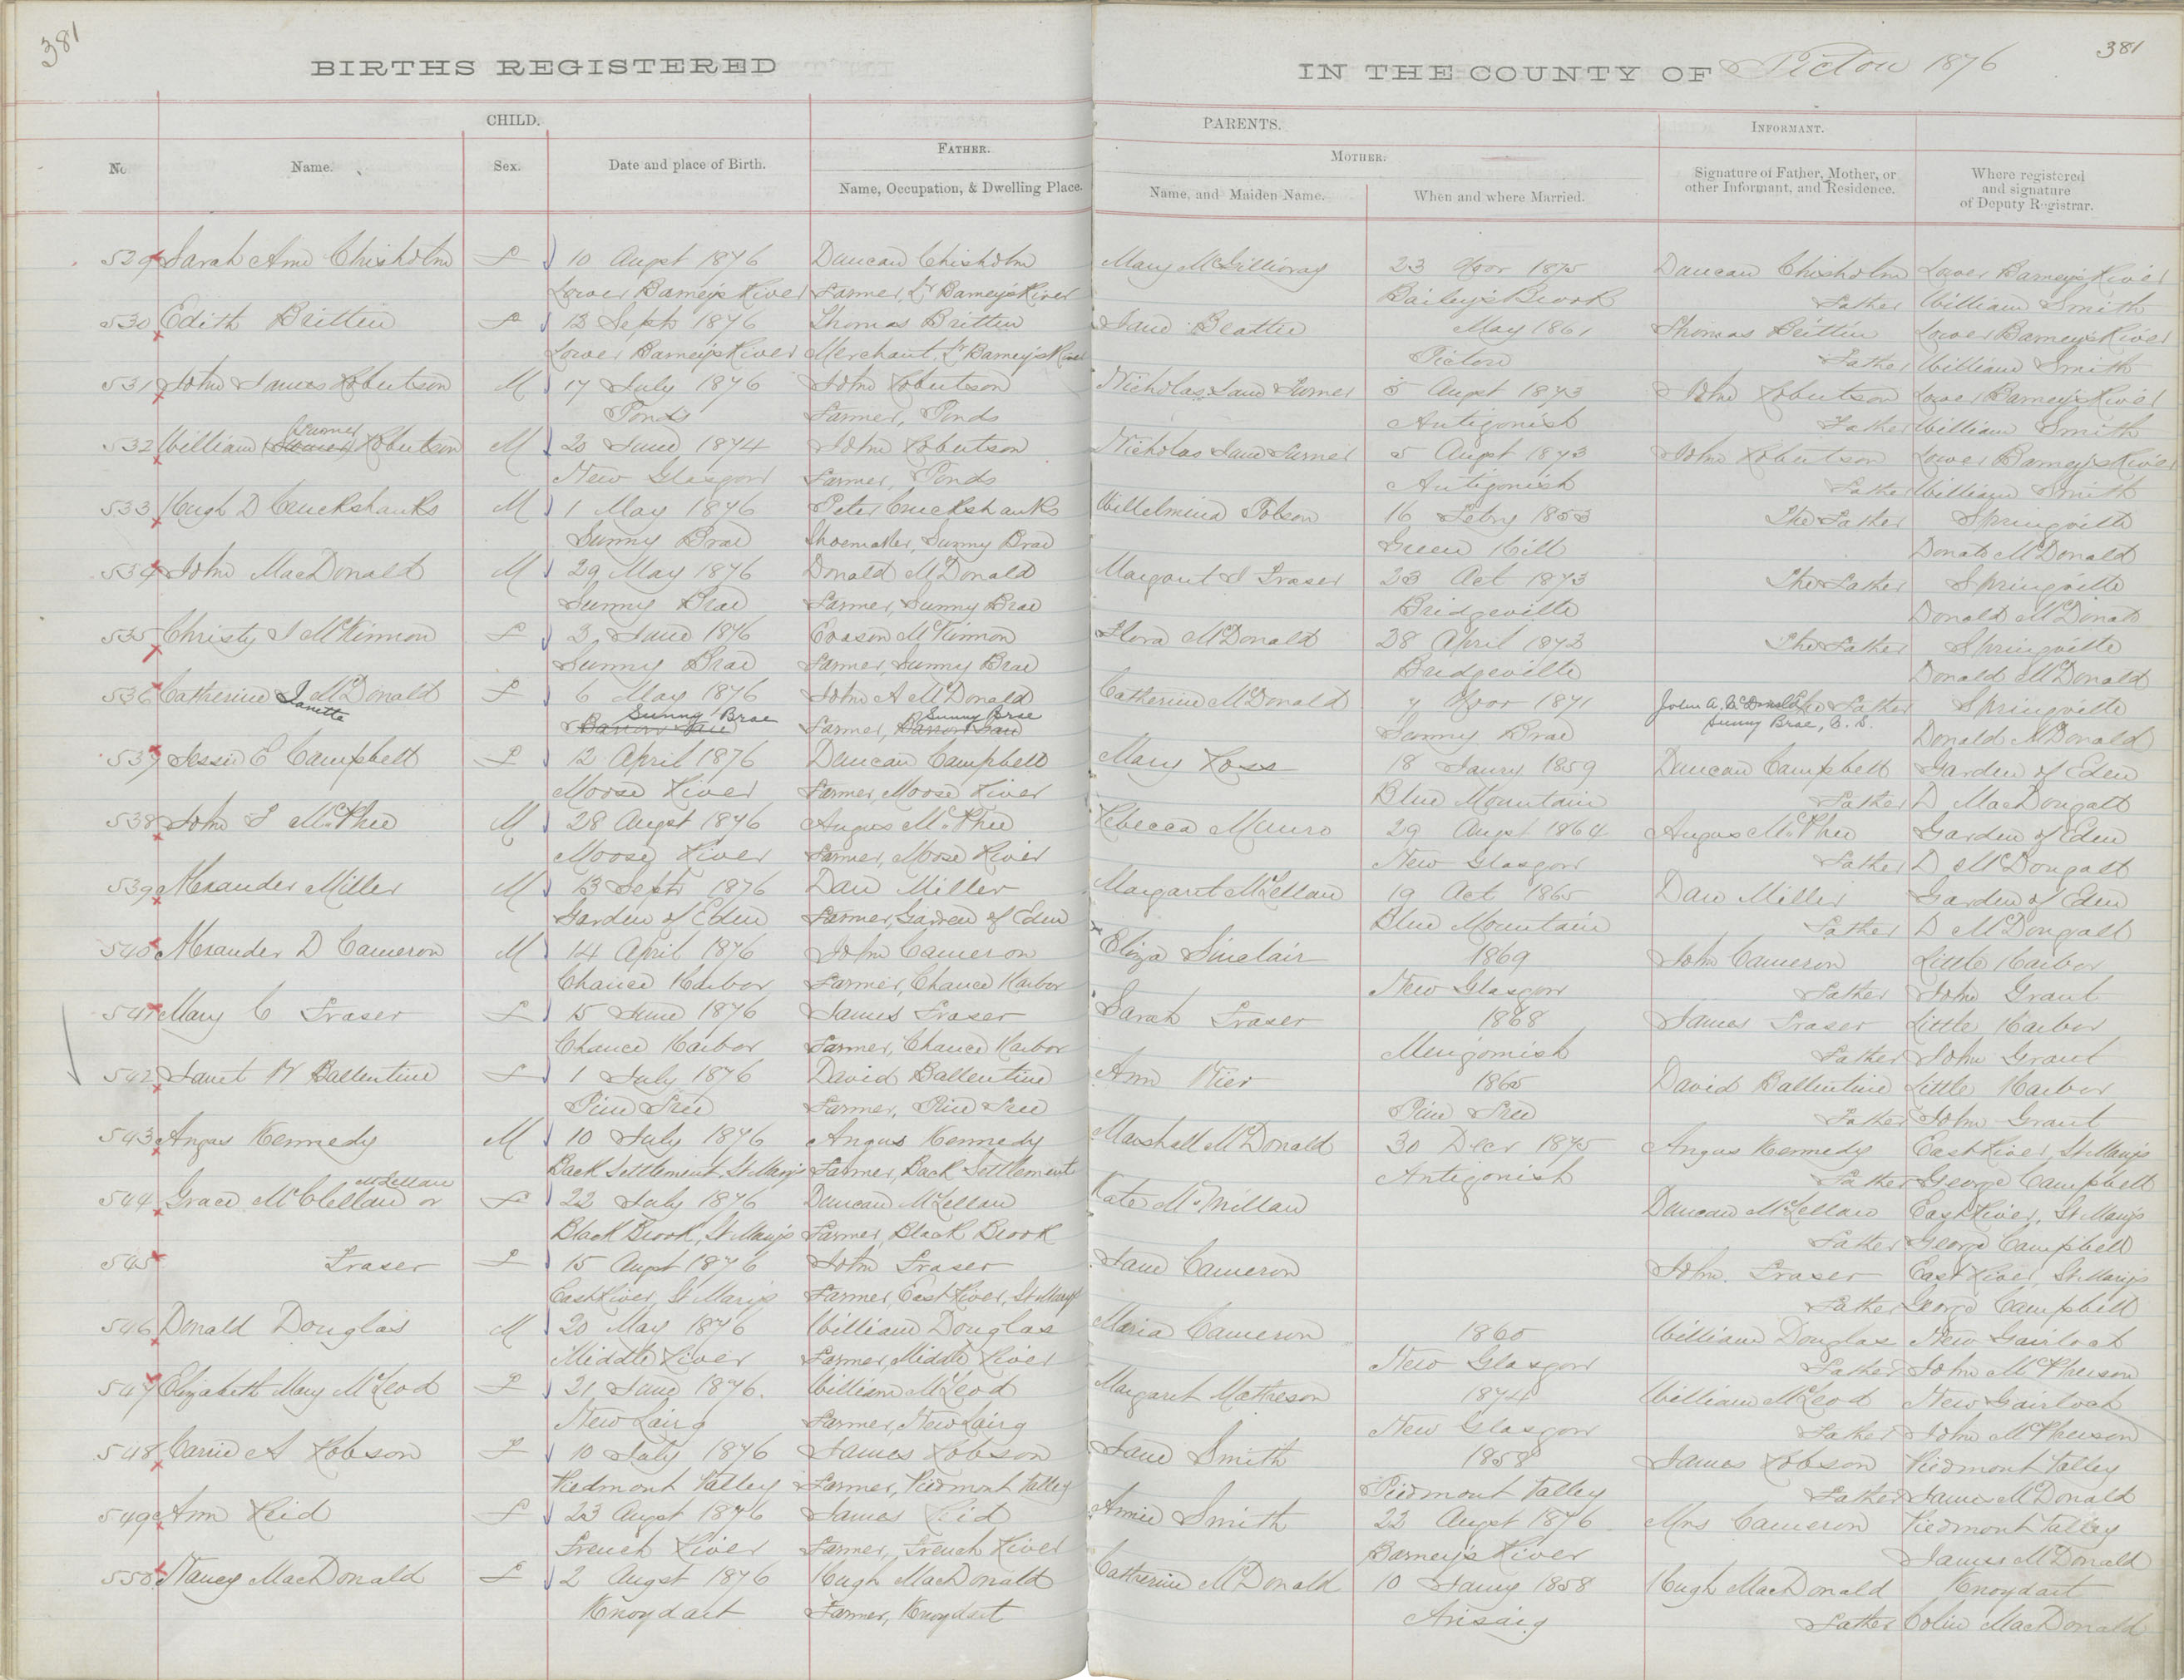 381
381
BIRTHS REGISTERED IN THE COUNTY OF Pictou 1876
CHILD. PARENTS. INFORMANT.
FATHER. MOTHER.
No. Name. Sex. Date and place of Birth. Name, Occupation, & Dwelling Place. Name, and Maiden Name. When and where Married. Signature of Father, Mother, or other Informant, and Residence. Where registered and signature of Deputy Registrar.
529 Sarah Ann Chisholm F 10 Augst 1876 Duncan Chisholm Mary McGillivray 23 Novr 1875 Duncan Chisholm Lower Barney's River
Lower Barney's River Farmer, Lr Barney's River Bailey's Brook Father William Smith
530 Edith Brittin F 13 Septr 1876 Thomas Brittin Jane Beattie May 1861 Thomas Brittin Lower Barney's River
Lower Barney's River Merchant, Lr Barney's River Pictou Father William Smith
531 John James Robertson M 17 July 1876 John Robertson Nicholas Jane Turner 5 Augst 1873 John Robertson Lower Barney's River
Ponds Farmer, Ponds Antigonish Father William Smith
Turner
532 William Robertson M 20 June 1874 John Robertson Nicholas Jane Turner 5 Augst 1873 John Robertson Lower Barney's River
New Glasgow Farmer, Ponds Antigonish Father William Smith
533 Hugh D Cruckshanks M 1 May 1876 Peter Cruckshanks Willelmina Polson 16 Febry 1853 The Father Springville
Sunny Brae Shoemaker, Sunny Brae Green Hill Donald McDonald
534 John MacDonald M 29 May 1876 Donald McDonald Margaret J Fraser 23 Oct 1873 The Father Springville
Sunny Brae Farmer, Sunny Brae Bridgeville Donald McDonald
535 Christy J McKinnon F 3 June 1876 McKinnon Flora McDonald 28 April 1873 The Father Springville
Sunny Brae Farmer, Sunny Brae Bridgeville Donald McDonald
536 Catherine J McDonald F 6 May 1876 John A McDonald Catherine McDonald " Novr 1871 John A. McDonald The Father Springville
Janetta Sunny Brae Farmer, Sunny Brae Sunny Brae Sunny Brae, E. R. Donald McDonald
537 Jessie E Campbell F 12 April 1876 Duncan Campbell Mary Ross 18 Janry 1859 Duncan Campbell Garden of Eden
Moose River Farmer, Moose River Blue Mountain Father D MacDougall
538 John F McPhee M 28 Augst 1876 Angus McPhee Rebecca Munro 29 Augst 1864 Angus McPhee Garden of Eden
Moose River Farmer, Moose River New Glasgow Father D McDougall
539 Alexander Miller M 13 Septr 1876 Dan Miller Margaret McLellan 19 Oct 1865 Dan Miller Garden of Eden
Garden of Eden Farmer, Garden of Eden Blue Mountain Father D McDougall
540 Alexander D Cameron M 14 April 1876 John Cameron Eliza Sinclair 1869 John Cameron Little Harbor
Chance Harbor Farmer, Chance Harbor New Glasgow Father John Grant
541 Mary C Fraser F 15 June 1876 James Fraser Sarah Fraser 1868 James Fraser Little Harbor
Chance Harbor Farmer, Chance Harbor Merigomish Father John Grant
542 Janet W Ballentine F 1 July 1876 David Ballentine Ann Wier 1865 David Ballentine Little Harbor
Pine Tree Farmer, Pine Tree Pine Tree Father John Grant
543 Angus Kennedy M 10 July 1876 Angus Kennedy Marshall McDonald 30 Decr 1875 Angus Kennedy East River, St Mary's
Back Settlement, St Mary's Farmer, Back Settlement Antigonish Father George Campbell
McLellan
544 Grace McClellan or F 22 July 1876 Duncan McLellan Kate McMillan Duncan McLellan East River, St Mary's
Black Brook, St Mary's Farmer, Black Brook Father George Campbell
545 Fraser F 15 Augst 1876 John Fraser Jane Cameron John Fraser East River, St Mary's
East River, St Mary's Farmer, East River, St Mary's Father George Campbell
546 Donald Douglas M 20 May 1876 William Douglas Maria Cameron 1865 William Douglas New Gairloch
Middle River Farmer, Middle River New Glasgow Father John McPherson
547 Elizabeth Mary McLeod F 21 June 1876. William McLeod Margaret Matheson 1874 William McLeod New Gairloch
New Lairg Farmer, New Lairg New Glasgow Father John McPherson
548 Carrie A Robson F 10 July 1876 James Robson Jane Smith 1858 James Robson Piedmont Valley
Piedmont Valley Farmer, Piedmont Valley Piedmont Valley Father James McDonald
549 Ann Reid F 23 Augst 1876 James Reid Annie Smith 22 Augst 1876 Mrs Cameron Piedmont Valley
French River Farmer, French River Barney's River James McDonald
550 Nancy MacDonald F 2 Augst 1876 Hugh MacDonald Catherine McDonald 10 Janry 1858 Hugh MacDonald Knoydart
Knoydart Farmer, Knoydart Arisaig Father Colin MacDonald